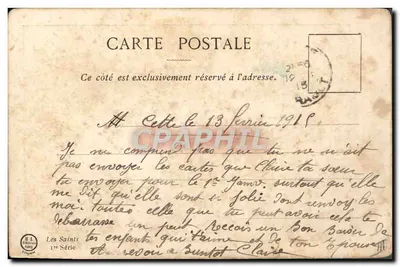 CARTE POSTALE
Ce côté est exclusivement réservé à l'adresse.
Cette le 13 fevrier 1915
CPARAMA
Je ne comprend pas que tu ne m'ait
pas envoyer les cartes que Claire ta sœur
ta envoyer pour le 1er Janv. surtout qu'elle
me dit qu'elle sont si jolie dont renvoy les
moi toutes elle que tu peut avoir cela te
debarrasse un peu. Recois un Bon Baiser de
tes enfants qui t'aime et de ton Epouse
revoir a Bientot Claire
Les Saints
1re Série